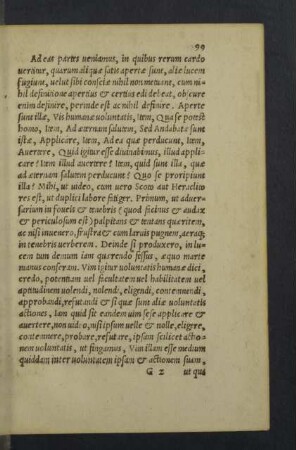 99
Ad eas partes ueniamus, in quibus rerum cardo
uertitur, quarum aliquæ satis apertæ sunt, aliæ lucem
fugiunt, uelut sibi consciæ nihil non metuant, cum ni-
hil definitione apertius & certius edi debeat, obscure
enim definire, perinde est ac nihil definire. Aperte
sunt illæ, Vis humanæ uoluntatis, item, Qua se potest
homo, item, Ad æternam salutem, Sed Andabatæ sunt
istæ, Applicare, item, Ad ea quæ perducunt, item,
Auertere. Quid igitur esse diuinabimus, illud appli-
care? item illud auertere? item, quid sunt illa, quæ
ad æternam salutem perducunt? Quo se proripiunt
illa? Mihi, ut uideo, cum uero Scoto aut Heraclito
res est, ut duplici labore fatiger. Primum, ut aduer-
sarium in foueis & tenebris (quod facinus & audax
& periculosum est) palpitans & tentans quæritem,
ac nisi inuenero, frustra & cum laruis pugnem, aeraq;
in tenebris uerberem. Deinde si produxero, in lu-
cem tum demum iam quærendo fessus, æquo marte
manus conseram. Vim igitur uoluntatis humanæ dici,
credo, potentiam uel facultatem uel habilitatem uel
aptitudinem uolendi, nolendi, eligendi, contemnendi,
approbandi, refutandi & si quæ sunt aliæ uoluntatis
actiones, Iam quid sit eandem uim sese applicare &
auertere, non uideo, nisi ipsum uelle & nolle, eligere,
contemnere, probare, refutare, ipsam scilicet actio-
nem uoluntatis, ut fingamus, Vim illam esse medium
quiddam inter uoluntatem ipsam & actionem suam,
G 2 ut qua